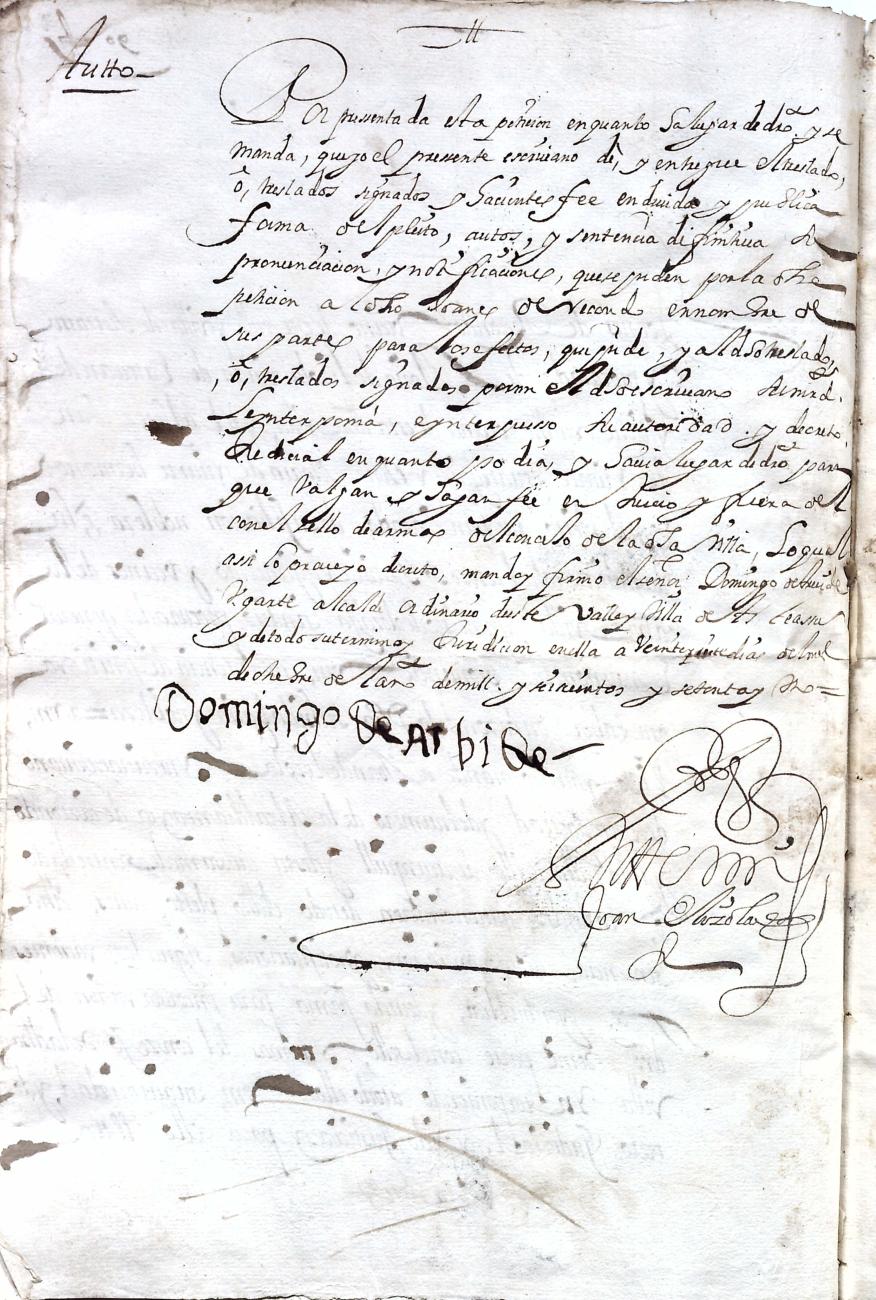 Autto
Por presentada esta peticion en quanto a lugar de dro. y se
manda, que yo el presente escrivano dè, y entregue el treslado,
ô, treslados signados y hacientes fee en devida y publica
forma del pleito, autos, y sentencia difinitiva
pronunciacion, y notificaciones, que se piden por la dha
peticion a l dho Joanes de Recondo en nombre de
sus partes para los efectos, que pide, y al dho treslado,
ô, treslados signados por mi el dho escrivano
se interponia, e ynterpusso su autoridad y decreto
Judicial en quanto podia, y havia lugar de dro. para
que valgan y hagan fee en Juicio y fuera del
con el sello de armas del concejo de la dha Villa, Lo qual
assi lo proveyo decreto, mando y firmo el señor Domingo de
Ygarte alcalde ordinario deste Valle y Villa de
y de todo su termino y Juridicion en ella a veinte y siete dias del mes
de otubre de l año de mill y seiscientos y setenta y
Domingo de Arbide
Ante mi
Joan de Olazola